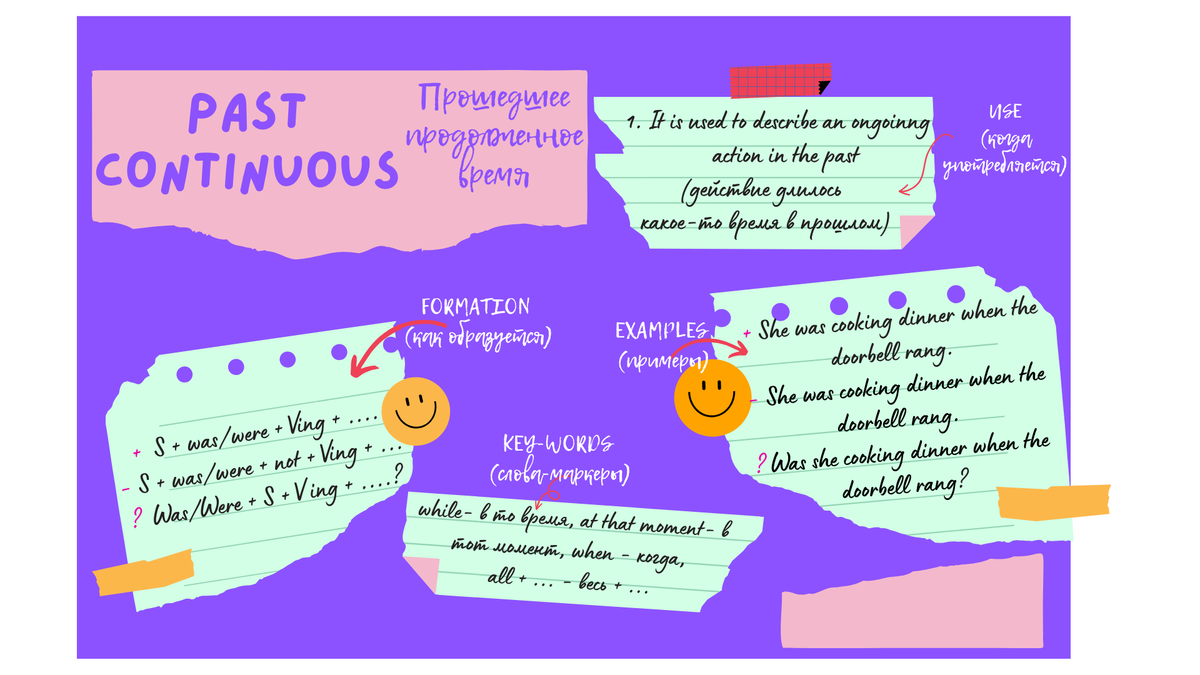 PAST
CONTINUOUS
Прошедшее
продолженное
время
1. It is used to describe an ongoinng
action in the past
(действие длилось
какое-то время в прошлом)
USE
(когда
употребляется)
FORMATION
(как образуется)
+ S + was/were + Ving + ....
- S + was/were + not + Ving + ...
? Was/Were + S + Ving + ....?
EXAMPLES
(примеры)
+ She was cooking dinner when the
doorbell rang.
- She was cooking dinner when the
doorbell rang.
? Was she cooking dinner when the
doorbell rang?
KEY-WORDS
(слова-маркеры)
while- в то время, at that moment- в
тот момент, when - когда,
all + ... - весь + ...